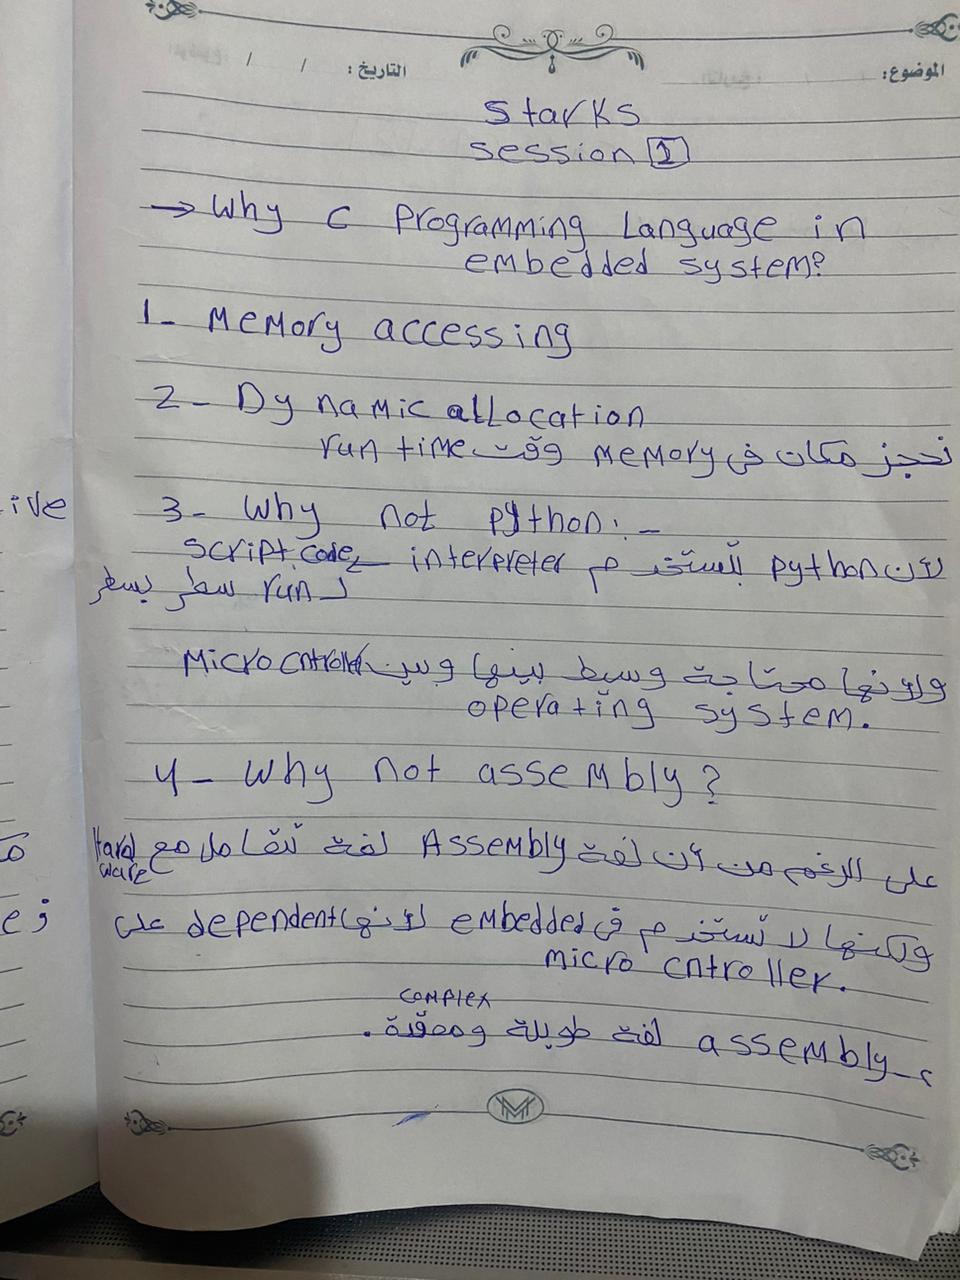 الموضوع: التاريخ: / /
Starks
session 1
→ Why C Programming Language in
embedded system?
1- Memory accessing
2- Dynamic allocation
نحجز مكان فى memory وقت run time
3- Why not python: -
لان python بتستخدم interpreter script code
لـ run سطر بسطر
ولانها محتاجة وسيط بينها وبين Micro cntroller
operating system.
4- Why not assembly?
على الرغم من أن لغة Assembly لغة تتعامل مع Hard
ware
ولكنها لا تستخدم فى embedded لانها dependent على
micro cntroller.
complex
assembly لغة طويلة ومعقدة .
ive